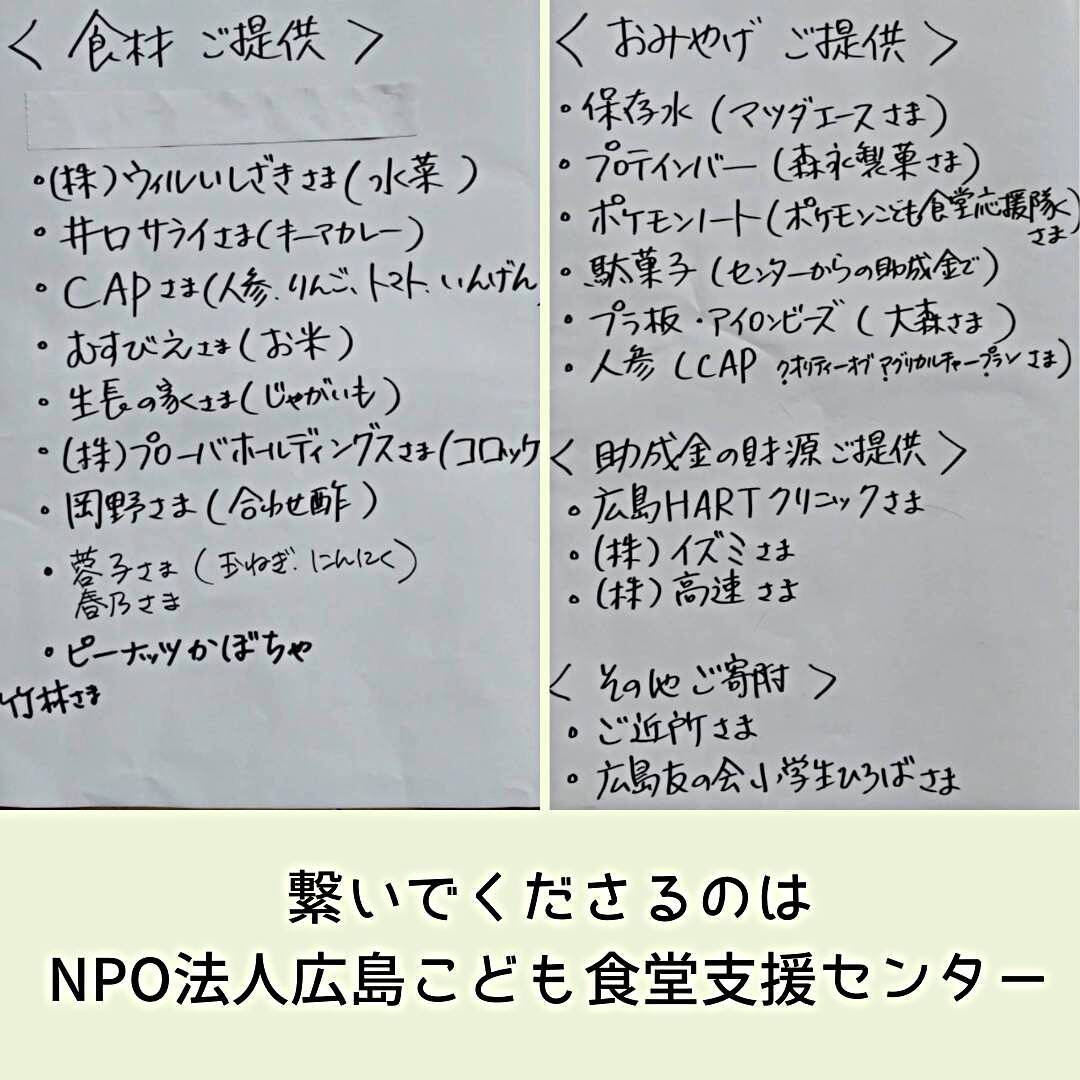 〈 食材 ご提供 〉
・(株)ウィルいしざきさま(水菜)
・井口サライさま(キーマカレー)
・CAPさま(人参、りんご、トマト、いんげん)
・むすびえさま(お米)
・生長の家くさま(じゃがいも)
・(株)プローバホールディングスさま(コロッケ
・岡野さま(合わせ酢)
・蓉子さま(玉ねぎ、にんにく)
春乃さま
・ピーナッツかぼちゃ
竹林さま
〈 おみやげ ご提供 〉
・保存水(マツダエースさま)
・プロテインバー(森永製菓さま)
・ポケモンノート(ポケモンこども食堂応援隊
さま)
・駄菓子(センターからの助成金で)
・プラ板・アイロンビーズ(大森さま)
・人参(CAP クオリティーオブアグリカルチャープランさま)
〈 助成金の財源ご提供 〉
・広島HARTクリニックさま
・(株)イズミさま
・(株)高速さま
〈 その他 ご寄附 〉
・ご近所さま
・広島友の会小学生ひろばさま
繋いでくださるのは
NPO法人広島こども食堂支援センター